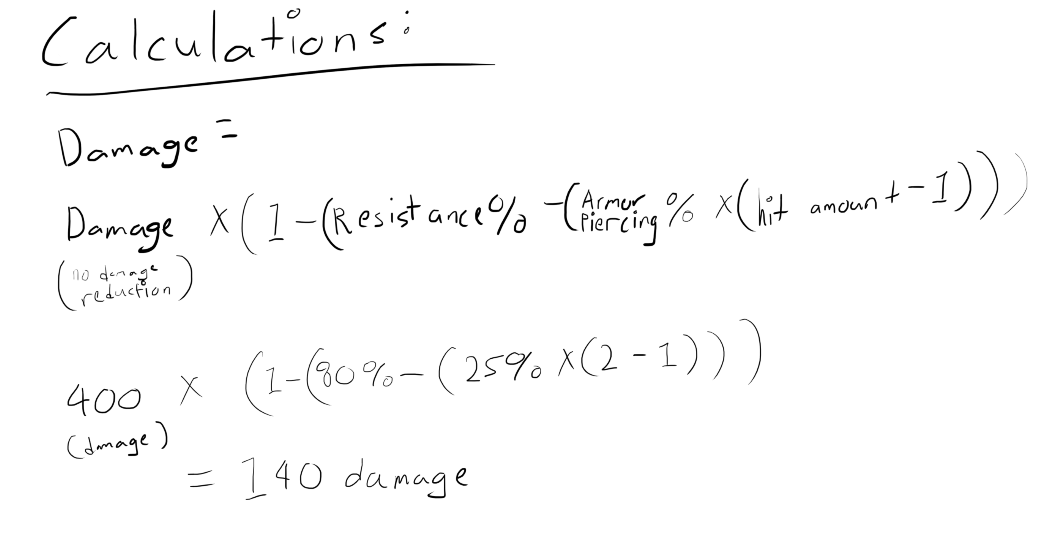 Calculations:
Damage =
Damage X (1-(Resistance% -(Armor Piercing % X(hit amount-1)))
(no damage reduction)
400 X (1-(90%-(25% X(2-1)))
(dmage)
= 140 damage